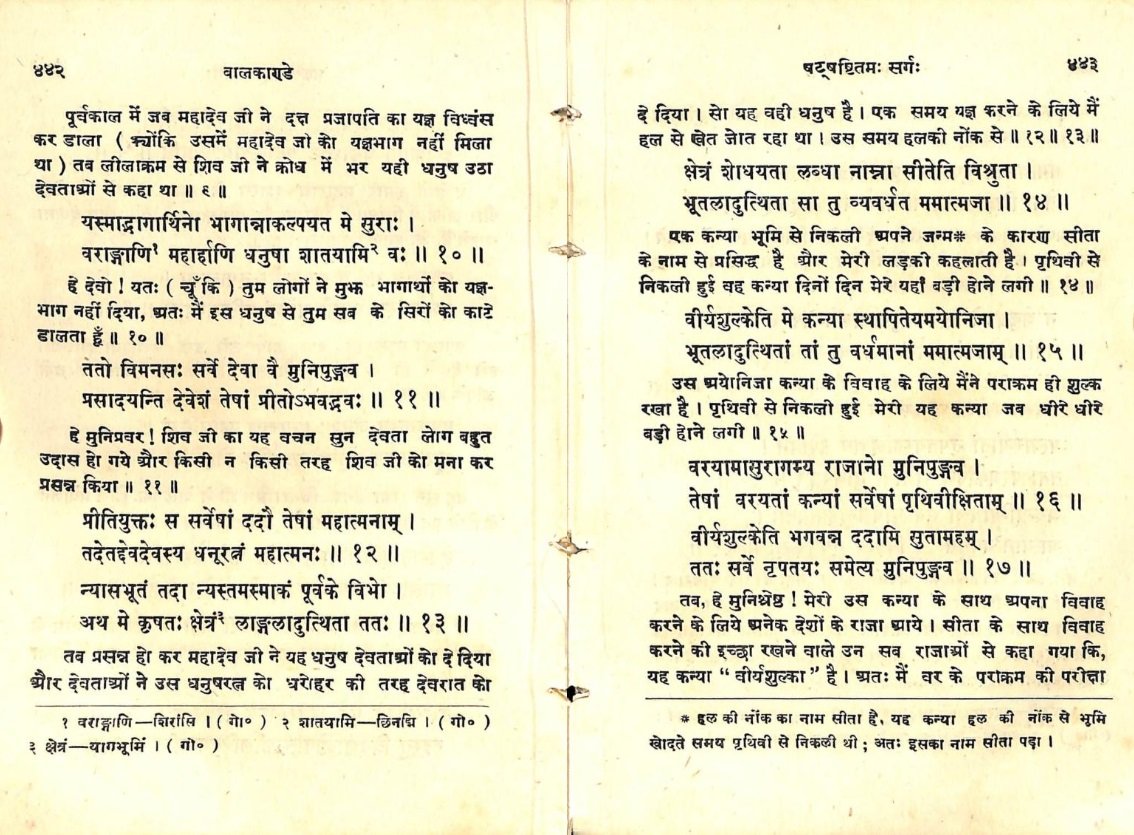 ४४२ वालकाण्डे
पूर्वकाल में जब महादेव जी ने दक्ष प्रजापति का यज्ञ विध्वंस
कर डाला ( क्योंकि उसमें महादेव जी को यज्ञभाग नहीं मिला
था ) तब लीलाक्रम से शिव जी ने क्रोध में भर यही धनुष उठा
देवताओं से कहा था ॥ ९ ॥
यस्माद्भागार्थिनो भागान्नाकल्पयत मे सुराः ।
वराङ्गाणि¹ महार्हाणि धनुषा शातयामि² वः ॥ १० ॥
हे देवो ! यतः ( चूँकि ) तुम लोगों ने मुझ भागार्थी को यज्ञ-
भाग नहीं दिया, अतः मैं इस धनुष से तुम सब के सिरों को काटे
डालता हूँ ॥ १० ॥
ततो विमनसः सर्वे देवा वै मुनिपुङ्गव ।
प्रसादयन्ति देवेशं तेषां प्रीतोऽभवद्भवः ॥ ११ ॥
हे मुनिप्रवर ! शिव जी का यह वचन सुन देवता लोग बहुत
उदास हो गये और किसी न किसी तरह शिव जी को मना कर
प्रसन्न किया ॥ ११ ॥
प्रीतियुक्तः स सर्वेषां ददौ तेषां महात्मनाम् ।
तदेतद्देवदेवस्य धनूरत्नं महात्मनः ॥ १२ ॥
न्यासभूतं तदा न्यस्तमस्माकं पूर्वके विभो ।
अथ मे कृषतः क्षेत्रं³ लाङ्गलादुत्थिता ततः ॥ १३ ॥
तब प्रसन्न हो कर महादेव जी ने यह धनुष देवताओं को दे दिया
और देवताओं ने उस धनुषरत्न को धरोहर की तरह देवरात को
१ वराङ्गाणि—शिरांसि । ( गो० ) २ शातयामि—छिनद्मि । ( गो० )
३ क्षेत्रं—यागभूमिं । ( गो० )
षट्षष्टितमः सर्गः ४४३
दे दिया । सो यह वही धनुष है । एक समय यज्ञ करने के लिये मैं
हल से खेत जोत रहा था । उस समय हलकी नोंक से ॥ १२ ॥ १३ ॥
क्षेत्रं शोधयता लब्धा नाम्ना सीतेति विश्रुता ।
भूतलादुत्थिता सा तु व्यवर्धत ममात्मजा ॥ १४ ॥
एक कन्या भूमि से निकली अपने जन्म* के कारण सीता
के नाम से प्रसिद्ध है और मेरी लड़की कहलाती है । पृथिवी से
निकली हुई वह कन्या दिनों दिन मेरे यहाँ बड़ी होने लगी ॥ १४ ॥
वीर्यशुल्केति मे कन्या स्थापितेयमयोनिजा ।
भूतलादुत्थितां तां तु वर्धमानां ममात्मजाम् ॥ १५ ॥
उस अयोनिजा कन्या के विवाह के लिये मैंने पराक्रम ही शुल्क
रखा है । पृथिवी से निकली हुई मेरी यह कन्या जब धीरे धीरे
बड़ी होने लगी ॥ १५ ॥
वरयामासुरागम्य राजानो मुनिपुङ्गव ।
तेषां वरयतां कन्यां सर्वेषां पृथिवीक्षिताम् ॥ १६ ॥
वीर्यशुल्केति भगवन्न ददामि सुतामहम् ।
ततः सर्वे नृपतयः समेत्य मुनिपुङ्गव ॥ १७ ॥
तब, हे मुनिश्रेष्ठ ! मेरी उस कन्या के साथ अपना विवाह
करने के लिये अनेक देशों के राजा आये । सीता के साथ विवाह
करने की इच्छा रखने वाले उन सब राजाओं से कहा गया कि,
यह कन्या “ वीर्यशुल्का ” है । अतः मैं वर के पराक्रम की परीक्षा
* हल की नोंक का नाम सीता है, यह कन्या हल की नोंक से भूमि
खोदते समय पृथिवी से निकली थी ; अतः इसका नाम सीता पड़ा ।